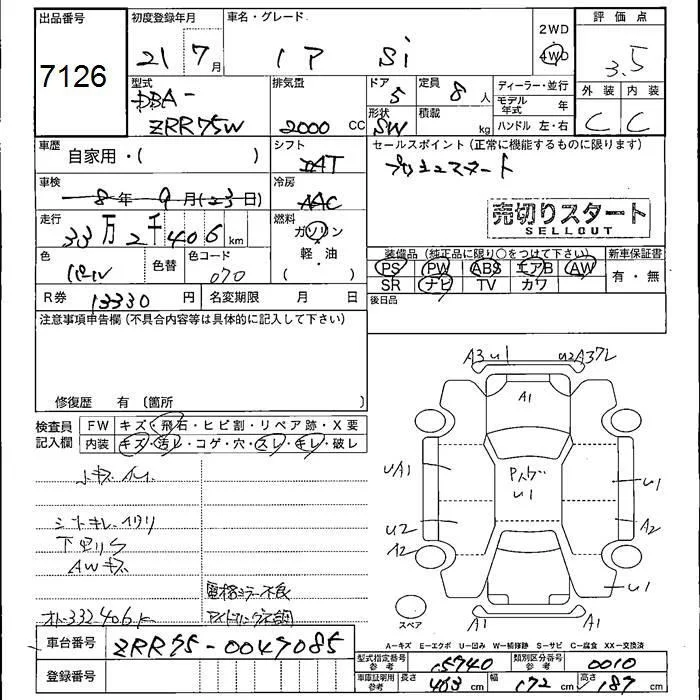 出品番号 初度登録年月 車名・グレード 2WD 評価点
7126 21 7月 ノア Si 4WD 3.5
型式 排気量 ドア 定員 ディーラー・並行 外装 内装
DBA- 5 8人 モデル年式 年
ZRR75W 2000 CC 形状 SW 積載 kg ハンドル 左・右 C C
車歴 自家用・( ) シフト セールスポイント (正常に機能するものに限ります)
AT プッシュスタート
車検 8年 9月(23日) 冷房 AAC
売切りスタート
SELLOUT
走行 33万2千406km 燃料 ガソリン
軽・油
( )
色 パール 色替 色コード 070
装備品 (純正品に限り○をつけて下さい) 新車保証書
PS PW ABS エアB AW 有・無
SR ナビ TV カワ
R券 13330円 名変期限 月 日 後日品
注意事項申告欄 (不具合内容等は具体的に記入して下さい)
修復歴 有 (箇所 )
検査員記入欄 FW キズ・飛石・ヒビ割・リペア跡・X要
内装 キズ・汚レ・コゲ・穴・スレ・キレ・破レ
A3 U1 U2 A3
A1
UA1 U1 U1
U2 A2
A2 U1
A1 A1
スペア
シートキレ
下廻りサ
AWキズ
電格ミラー不良
アイドリング不調
332406K
A−キズ E−エクボ U−凹み W−補修跡 S−サビ C−腐食 XX−交換済
車台番号 ZRR75-0047085
登録番号
型式指定番号 参考 15740 類別区分番号 参考 0010
車庫証明用 参考 長さ 463 cm 幅 172 cm 高さ 187 cm